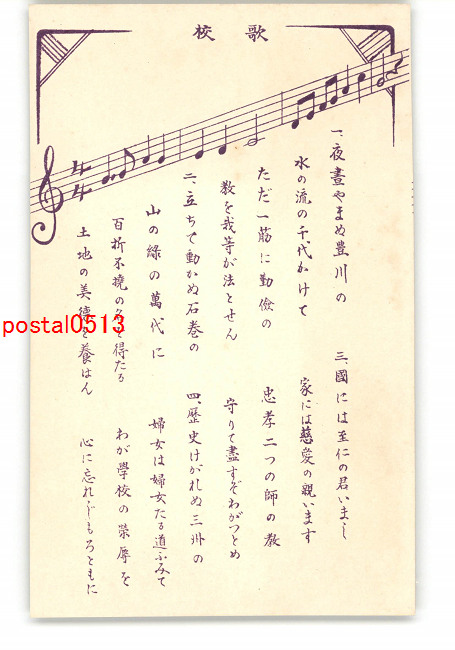 校歌
一、夜晝やまぬ豊川の
水の流の千代かけて
たゞ一筋に勤儉の
教を我等が法とせん
二、立ちて動かぬ石巻の
山の緑の萬代に
百折不撓の名を得たる
土地の美徳を養はん
三、國には至仁の君いまし
家には慈愛の親います
忠孝二つの師の教
守りて盡すぞわがつとめ
四、歴史けがれぬ三州の
婦女は婦女たる道ふみて
わが學校の榮辱を
心に忘れじもろともに
postal0513